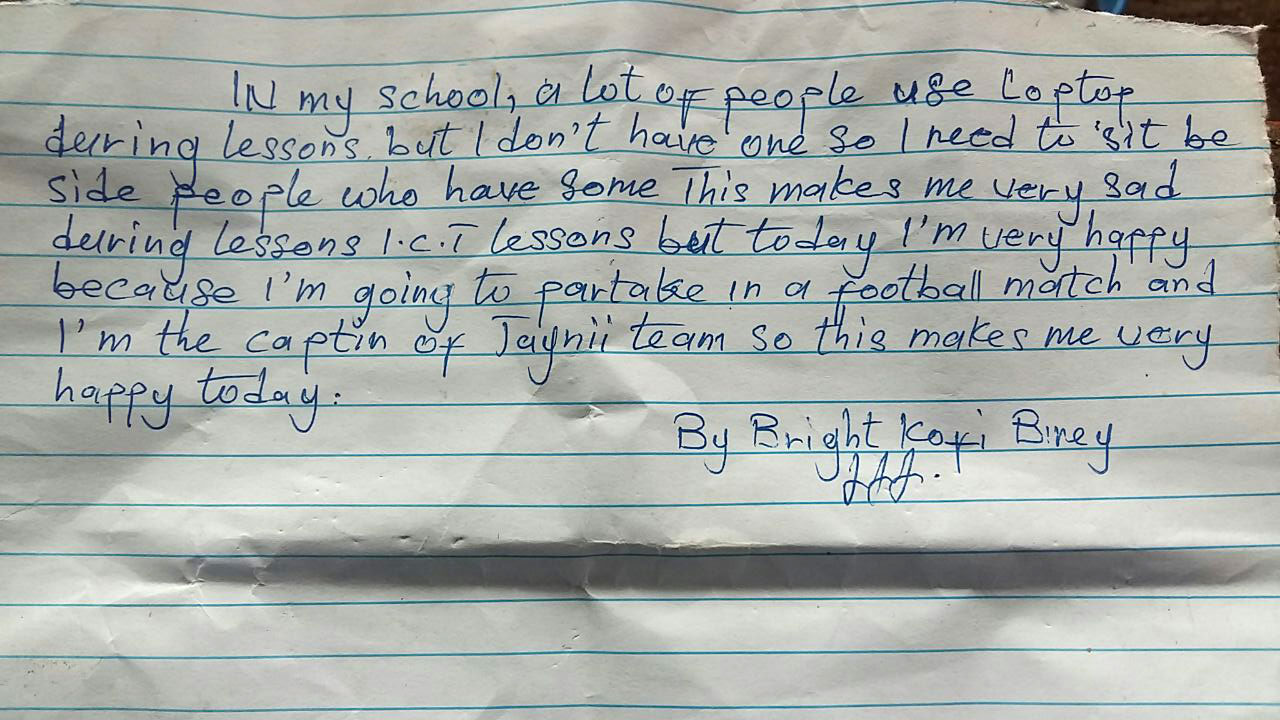 IN my school, a lot of people use Loptop
during lessons. but I don't have one so I need to sit be
side people who have some This makes me very sad
during lessons I.C.T lessons but today I'm very happy
because I'm going to partake in a football match and
I'm the captin of Jaynii team so this makes me very
happy today.
By Bright Kofi Biney